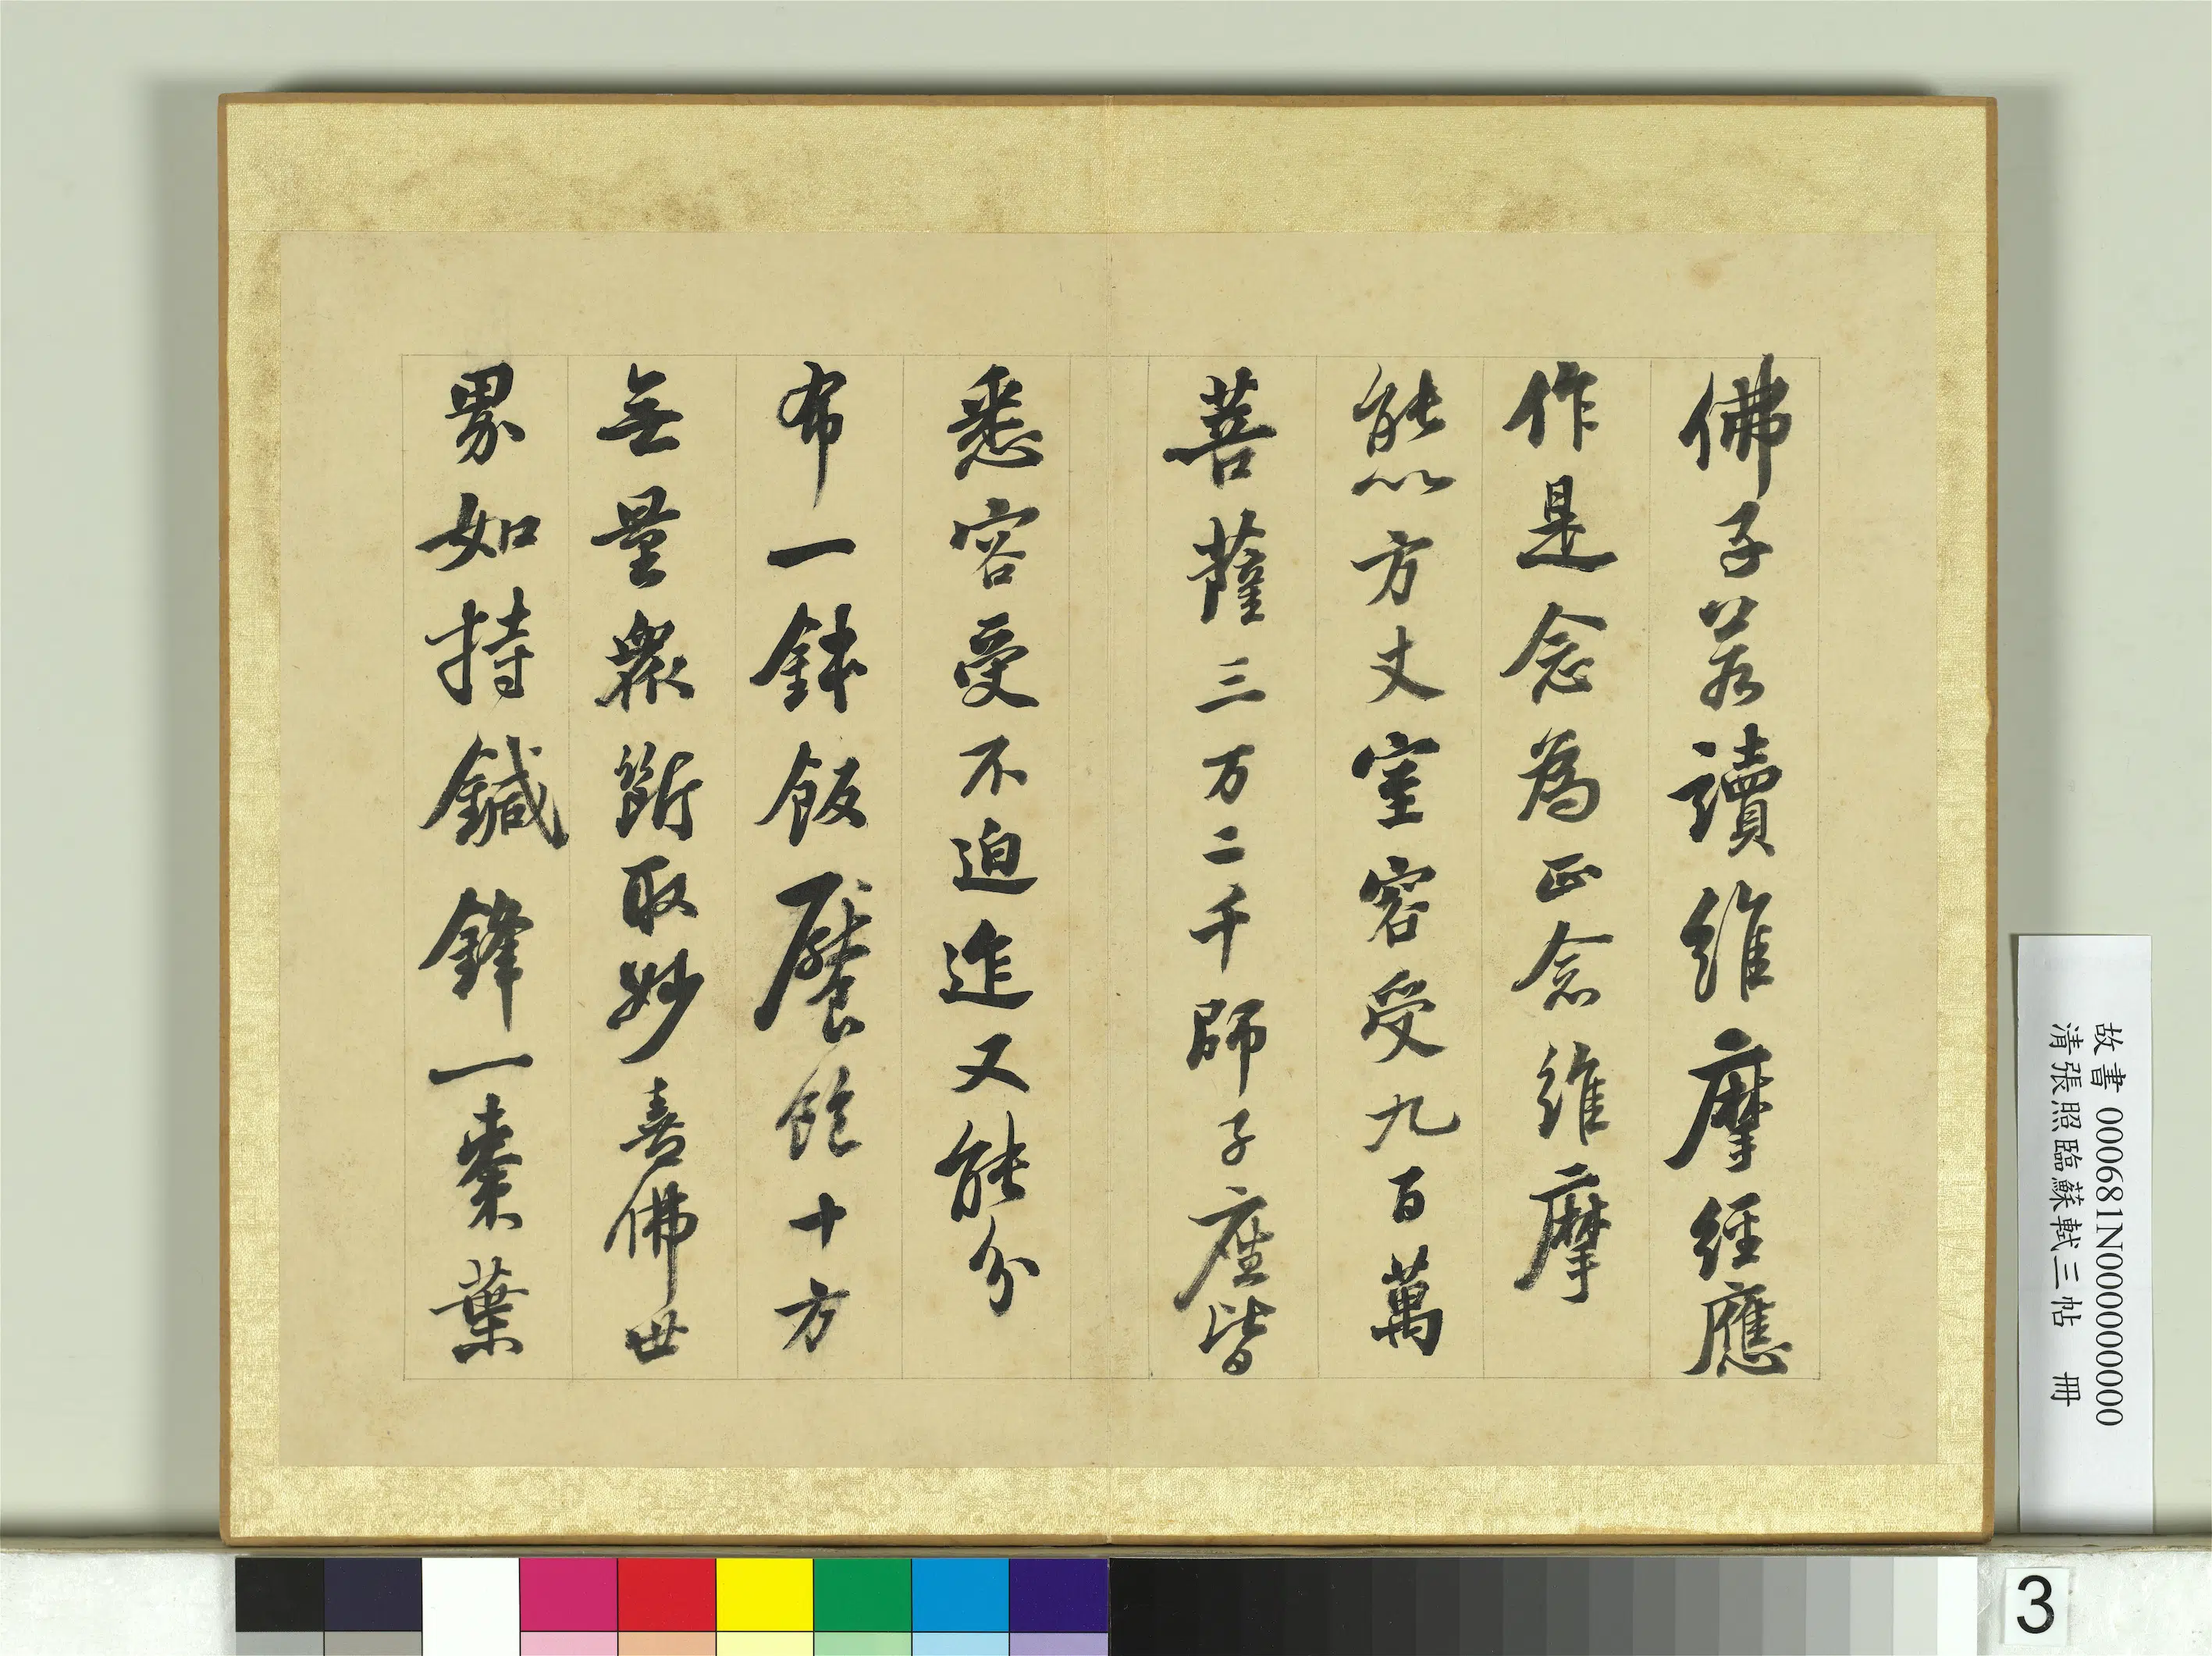 佛子若讀維摩經應
作是念為正念維摩
能以方丈室容受九百萬
菩薩三万二千師子座皆
悉容受不迫迮又能分
布一鉢飯饜飽十方
無量衆斷取妙喜佛世
界如持鍼鋒一棗葉
故書 000681N000000000
清張照臨蘇軾三帖 冊
3